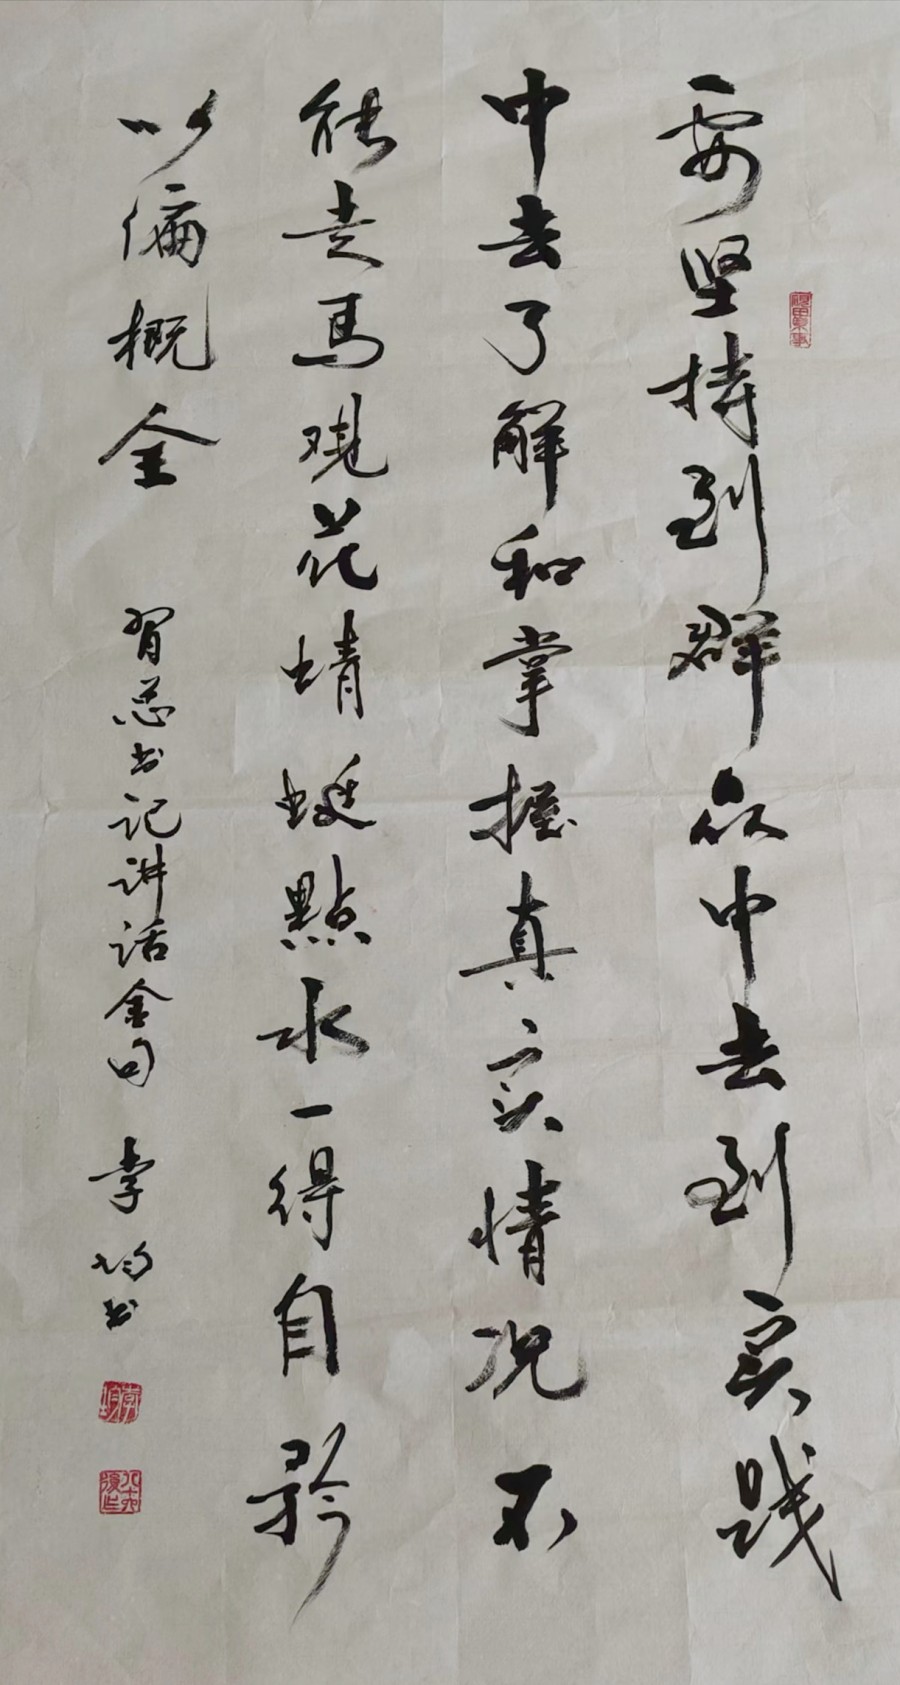 要坚持到群众中去到实践
中去了解和掌握真实情况不
能走马观花蜻蜓點水一得自矜
以偏概全
习总书记讲话金句
李均书